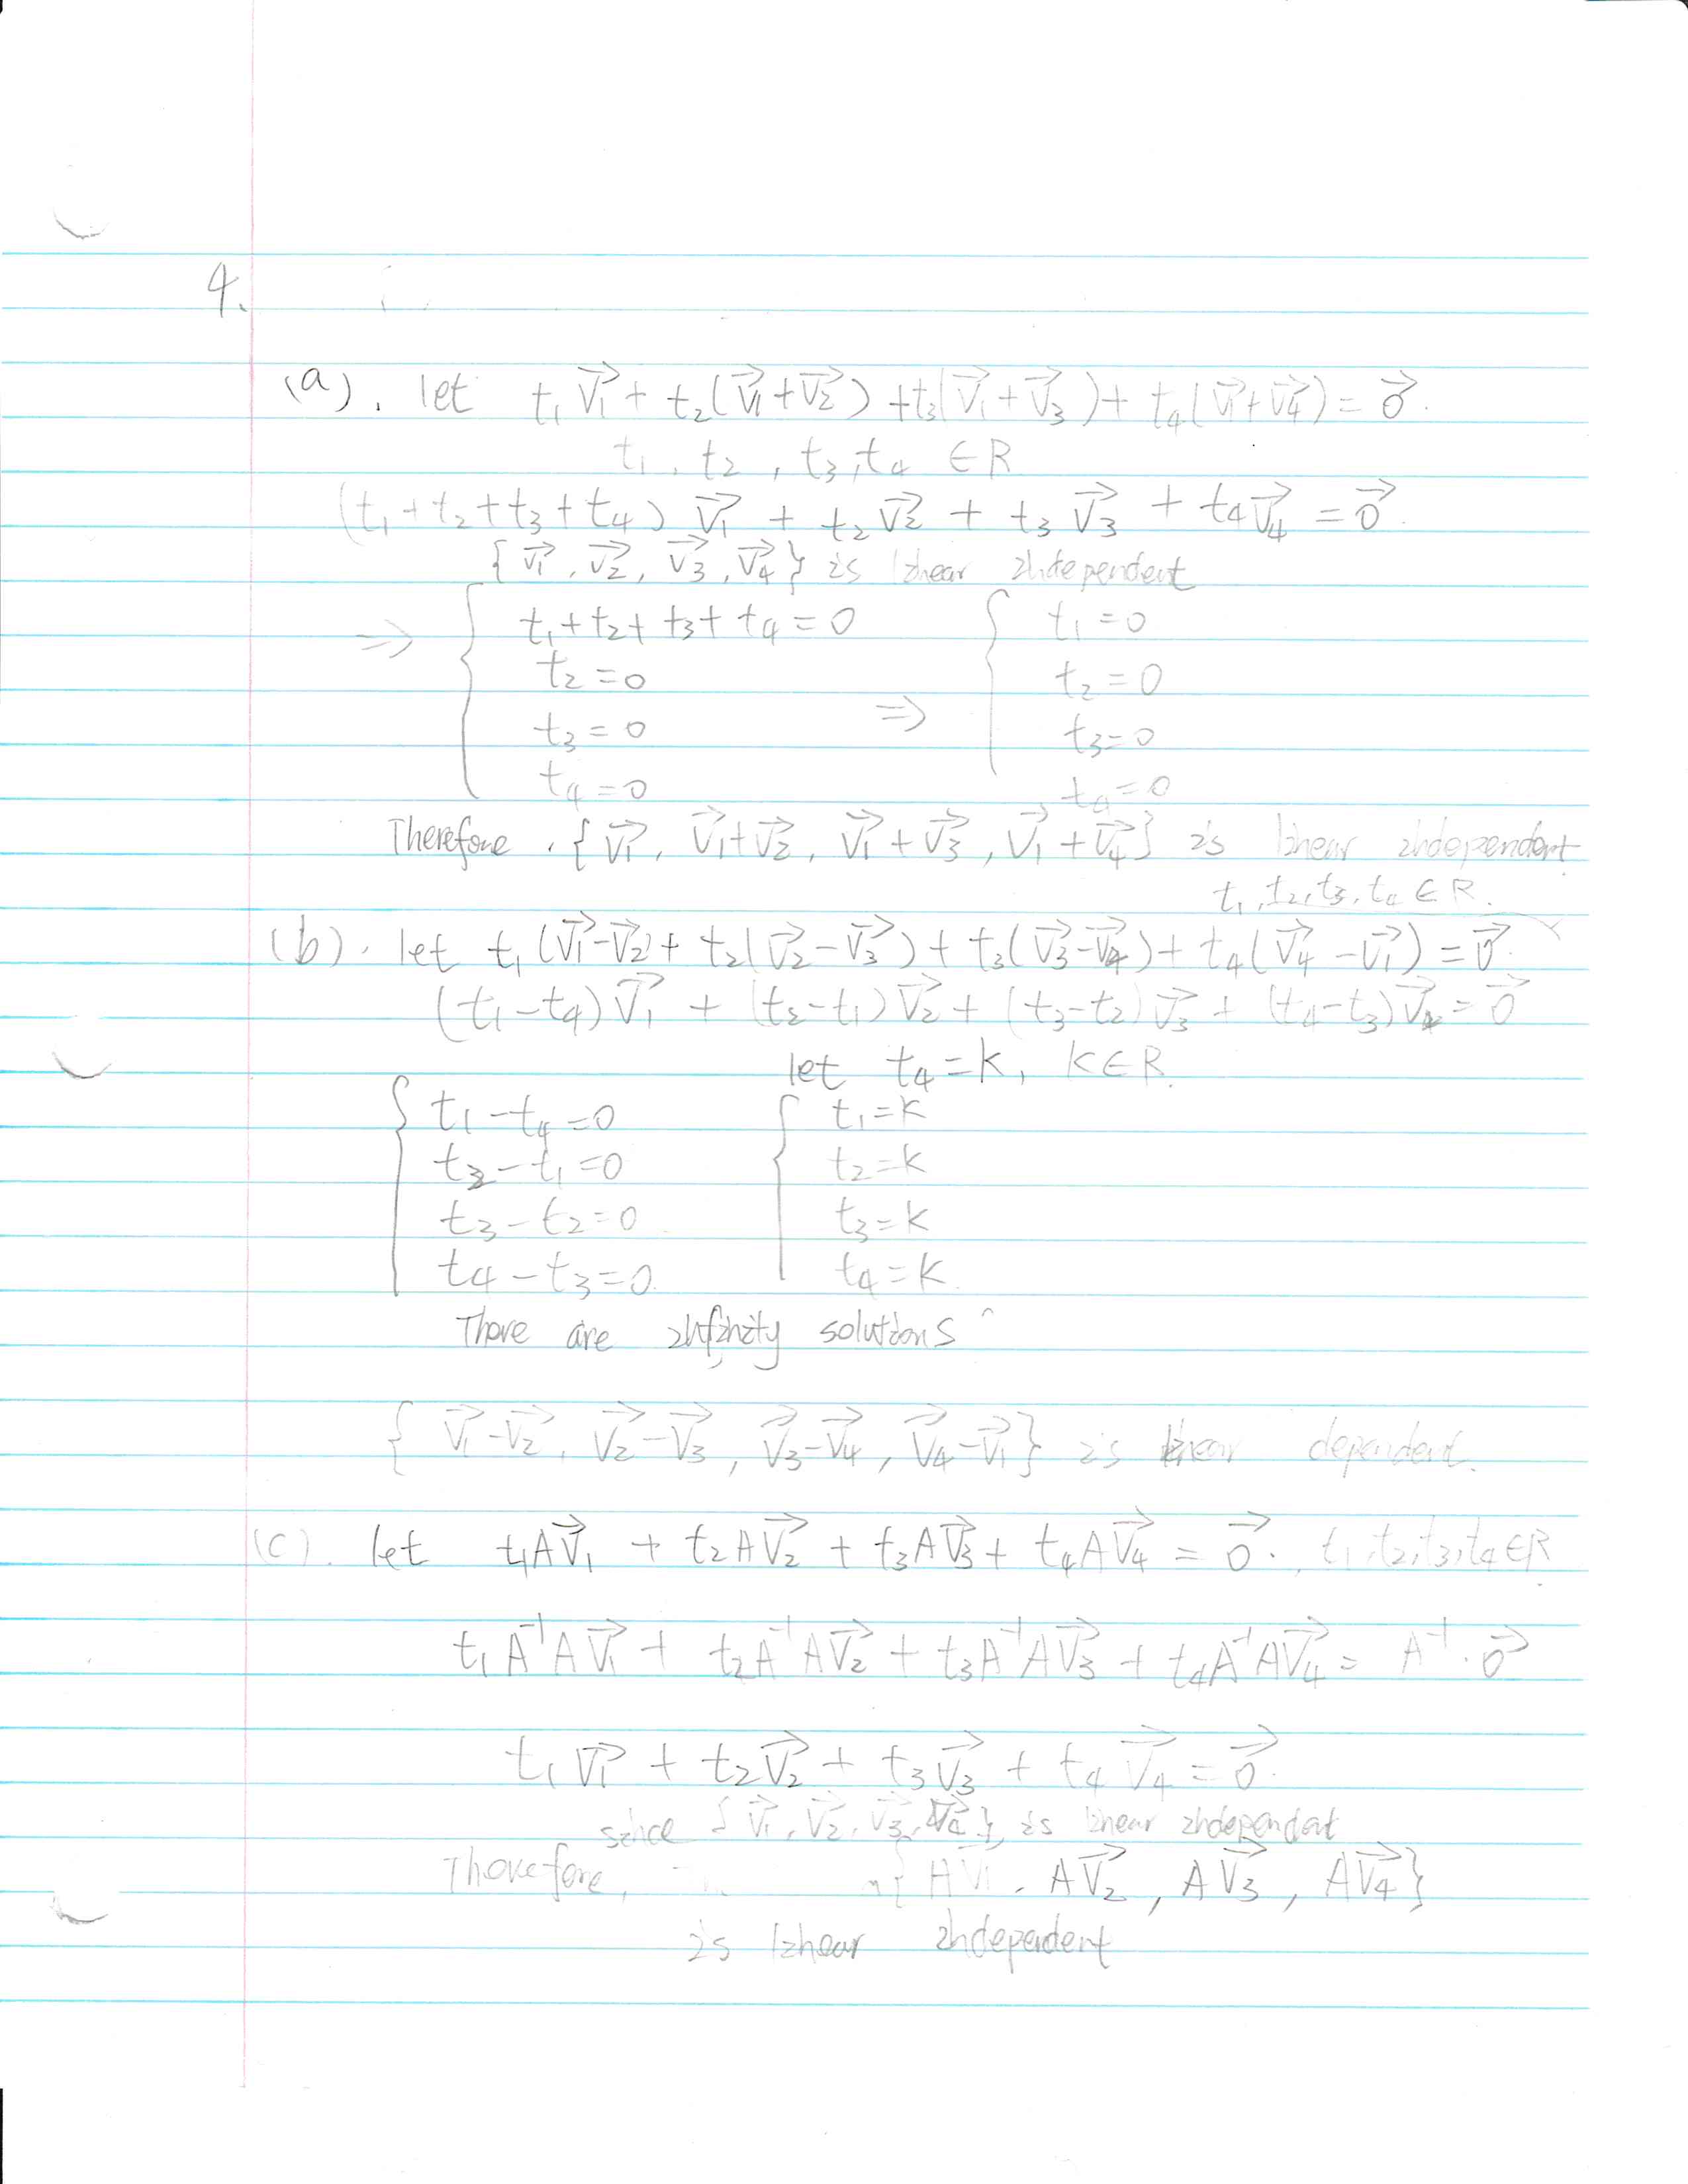 4.
(a). let t₁v⃗₁ + t₂(v⃗₁+v⃗₂) + t₃(v⃗₁+v⃗₃) + t₄(v⃗₁+v⃗₄) = 0⃗.
t₁, t₂, t₃, t₄ ∈ R
(t₁+t₂+t₃+t₄) v⃗₁ + t₂v⃗₂ + t₃v⃗₃ + t₄v⃗₄ = 0⃗.
{v⃗₁, v⃗₂, v⃗₃, v⃗₄} is linear independent
⇒ { t₁+t₂+t₃+t₄=0 { t₁=0
t₂=0 t₂=0
t₃=0 ⇒ t₃=0
t₄=0 t₄=0
Therefore, {v⃗₁, v⃗₁+v⃗₂, v⃗₁+v⃗₃, v⃗₁+v⃗₄} is linear independent
t₁, t₂, t₃, t₄ ∈ R.
(b). let t₁(v⃗₁-v⃗₂) + t₂(v⃗₂-v⃗₃) + t₃(v⃗₃-v⃗₄) + t₄(v⃗₄-v⃗₁) = 0⃗
(t₁-t₄)v⃗₁ + (t₂-t₁)v⃗₂ + (t₃-t₂)v⃗₃ + (t₄-t₃)v⃗₄ = 0⃗
let t₄=k, k∈R.
{ t₁-t₄=0 { t₁=k
t₂-t₁=0 t₂=k
t₃-t₂=0 t₃=k
t₄-t₃=0. t₄=k.
There are infinity solutions
{v⃗₁-v⃗₂, v⃗₂-v⃗₃, v⃗₃-v⃗₄, v⃗₄-v⃗₁} is linear dependent.
(c). let t₁Av⃗₁ + t₂Av⃗₂ + t₃Av⃗₃ + t₄Av⃗₄ = 0⃗. , t₁,t₂,t₃,t₄∈R
t₁A⁻¹Av⃗₁ + t₂A⁻¹Av⃗₂ + t₃A⁻¹Av⃗₃ + t₄A⁻¹Av⃗₄ = A⁻¹·0⃗
t₁v⃗₁ + t₂v⃗₂ + t₃v⃗₃ + t₄v⃗₄ = 0⃗.
since {v⃗₁, v⃗₂, v⃗₃, v⃗₄}, is linear independent
Therefore, {Av⃗₁, Av⃗₂, Av⃗₃, Av⃗₄}
is linear independent